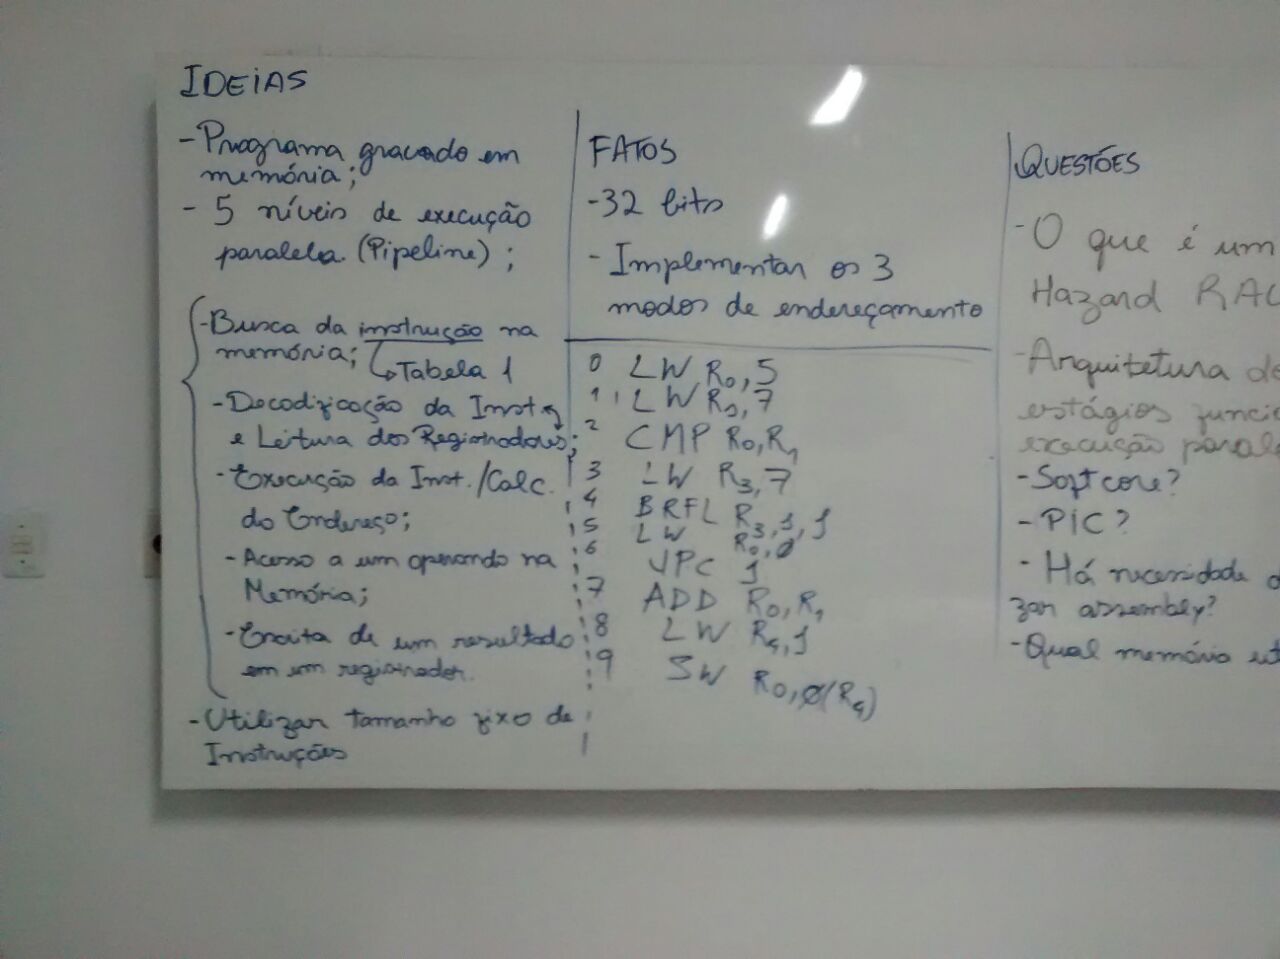 IDEIAS
- Programa gravado em
memória;
- 5 níveis de execução
paralela (Pipeline);
- Busca da instrução na
memória; ↳ Tabela 1
- Decodificação da Inst.
e Leitura dos Registradores;
- Execução da Inst./Calc.
do Endereço;
- Acesso a um operando na
Memória;
- Escrita de um resultado
em um registrador.
- Utilizar tamanho fixo de
Instruções
FATOS
- 32 bits
- Implementar os 3
modos de endereçamento
0 LW R0,5
1 LW R1,7
2 CMP R0,R1
3 LW R3,7
4 BRFL R3,1,1
5 LW R0,0
6 JPC 1
7 ADD R0,R1
8 LW R4,1
9 SW R0,0(R4)
QUESTÕES
- O que é um
Hazard
- Arquitetura de
estágios
execução
- Softcore?
- PIC?
- Há necessidade
zar assembly?
- Qual memória